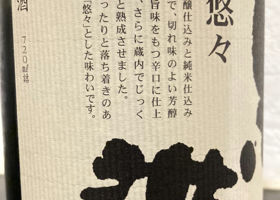 悠々
醸仕込みと純米仕込み
で、切れ味のよい芳醇
旨味をもつ辛口に仕上
、さらに蔵内でじっく
と熟成させました。
ったりと落ち着きのあ
「悠々」とした味わいです。
酒
720ml詰